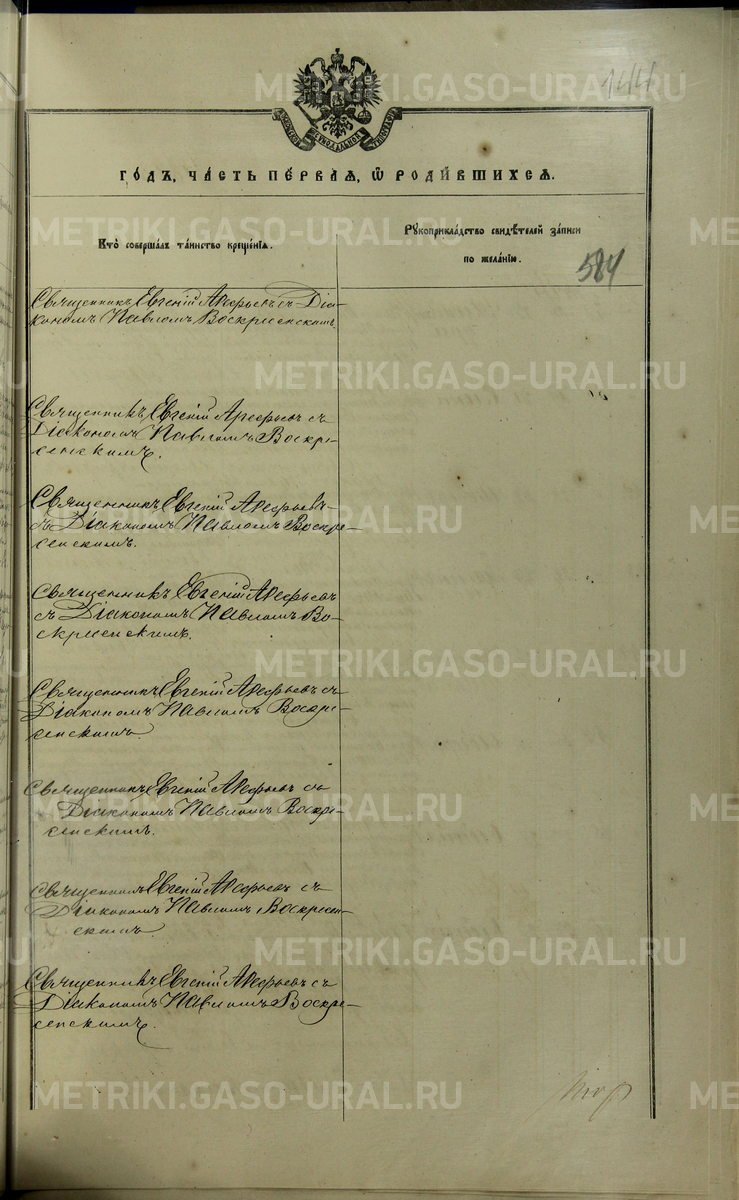 144
МОСКОВСКОЙ СѴНОДАЛЬНОЙ ТИПОГРАФІИ
ГО́ДЪ, ЧА́СТЬ ПЕ́РВАЯ, Ѡ҆ РОДИ́ВШИХСЯ.
Кто̀ соверша́лъ та́инство креще́нїѧ.
Рꙋкоприкла́дство свидѣ́телей за́писи
по жела́нїю.
584
Священникъ Евгеній Арефьевъ съ Діа-
кономъ Павломъ Воскресенскимъ.
Священникъ Евгеній Арефьевъ съ
Діакономъ Павломъ Воскре-
сенскимъ.
Священникъ Евгеній Арефьевъ
съ Діакономъ Павломъ Воскре-
сенскимъ.
Священникъ Евгеній Арефьевъ
съ Діакономъ Павломъ Во-
скресенскимъ.
Священникъ Евгеній Арефьевъ съ
Діакономъ Павломъ Воскре-
сенскимъ.
Священникъ Евгеній Арефьевъ съ
Діакономъ Павломъ Воскре-
сенскимъ.
Священникъ Евгеній Арефьевъ съ
Діакономъ Павломъ Воскресен-
скимъ.
Священникъ Евгеній Арефьевъ съ
Діакономъ Павломъ Воскре-
сенскимъ.
METRIKI.GASO-URAL.RU